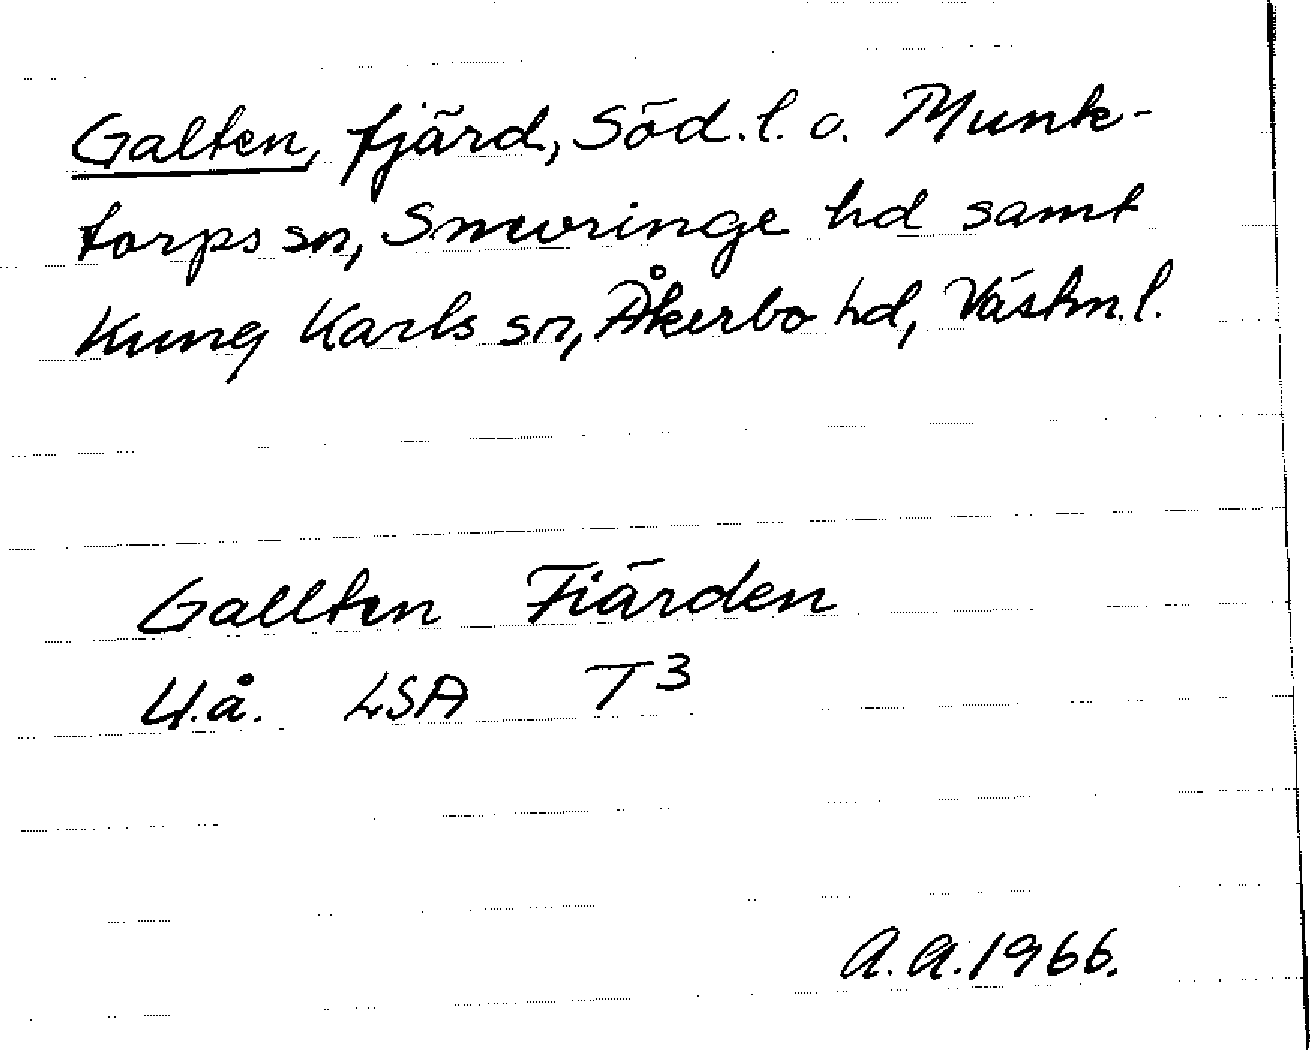 Galten, fjärd, Söd.l. o. Munk-
torps sn, Snevringe hd samt
Kung Karls sn, Åkerbo hd, Västm.l.
Gallten Fiärden
U.å. LSA T3
A.A.1966.